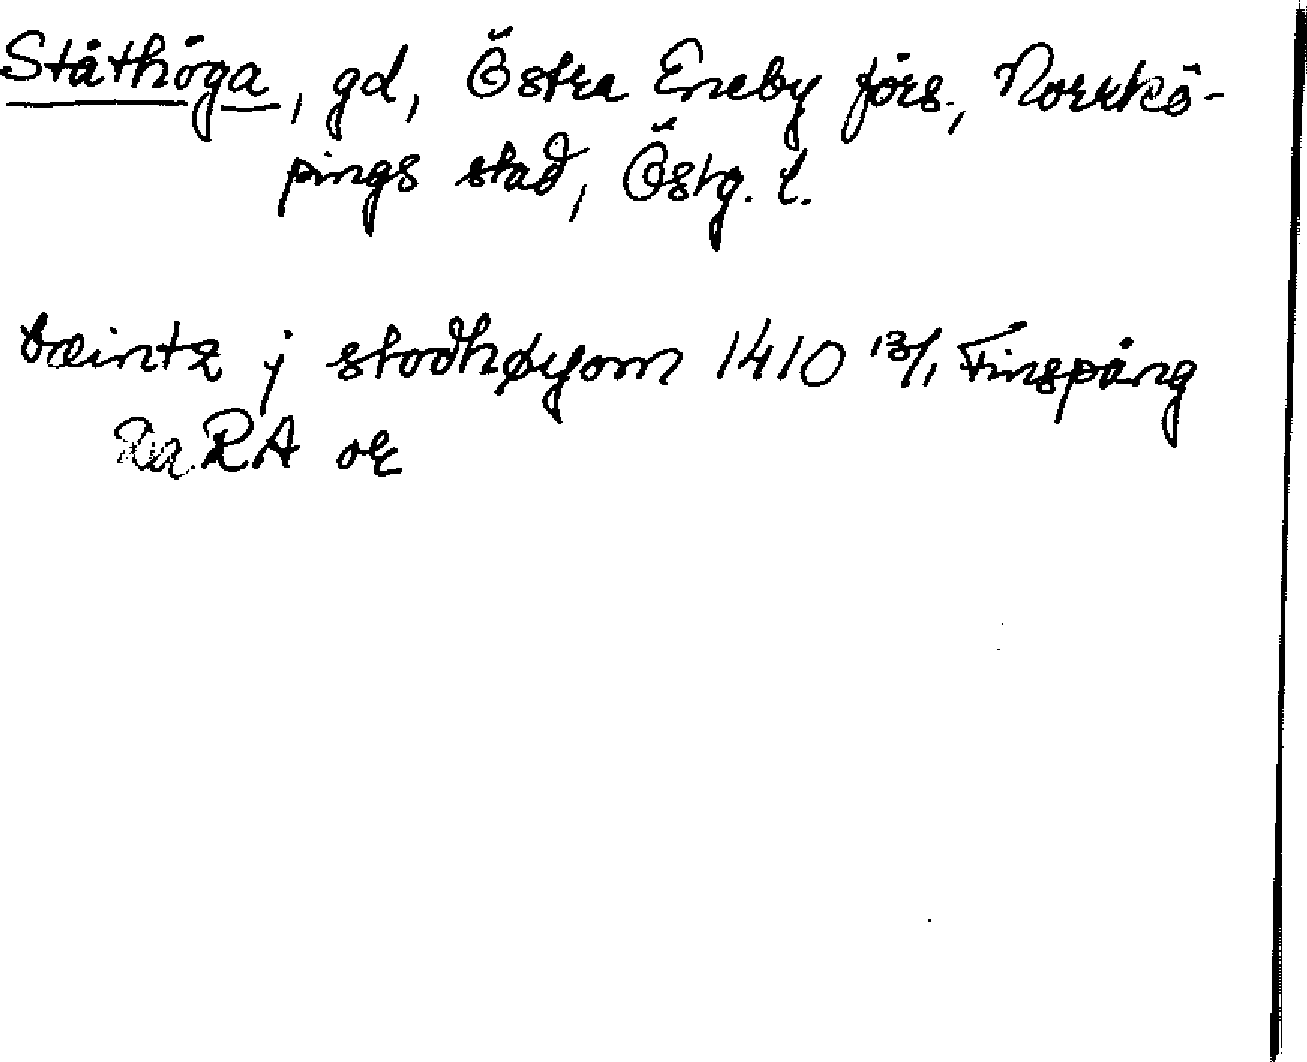 Ståthöga, gd, Östra Eneby förs., Norrkö-
pings stad, Östg. l.
bæintz j stodhøyom 1410 13/1 Finspång
RA or